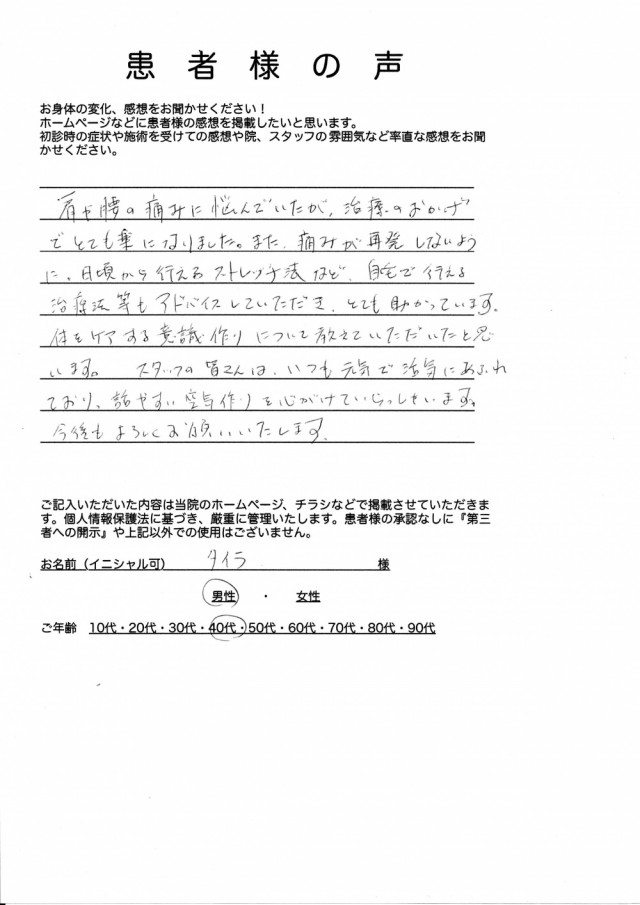 患者様の声
お身体の変化、感想をお聞かせください！
ホームページなどに患者様の感想を掲載したいと思います。
初診時の症状や施術を受けての感想や院、スタッフの雰囲気など率直な感想をお聞
かせください。
肩や腰の痛みに悩んでいたが、治療のおかげ
でとても楽になりました。また、痛みが再発しないよう
に、日頃から行えるストレッチ法など、自宅で行える
治療法等もアドバイスしていただき、とても助かっています。
体をケアする意識作りについて教えていただいたと思
います。 スタッフの皆さんは、いつも元気で活気にあふれ
ており、話やすい空気作りを心がけていらっしゃいます。
今後もよろしくお願いいたします。
ご記入いただいた内容は当院のホームページ、チラシなどで掲載させていただきま
す。個人情報保護法に基づき、厳重に管理いたします。患者様の承認なしに『第三
者への開示』や上記以外での使用はございません。
お名前（イニシャル可） タイラ 様
男性 ・ 女性
ご年齢 10代・20代・30代・40代・50代・60代・70代・80代・90代